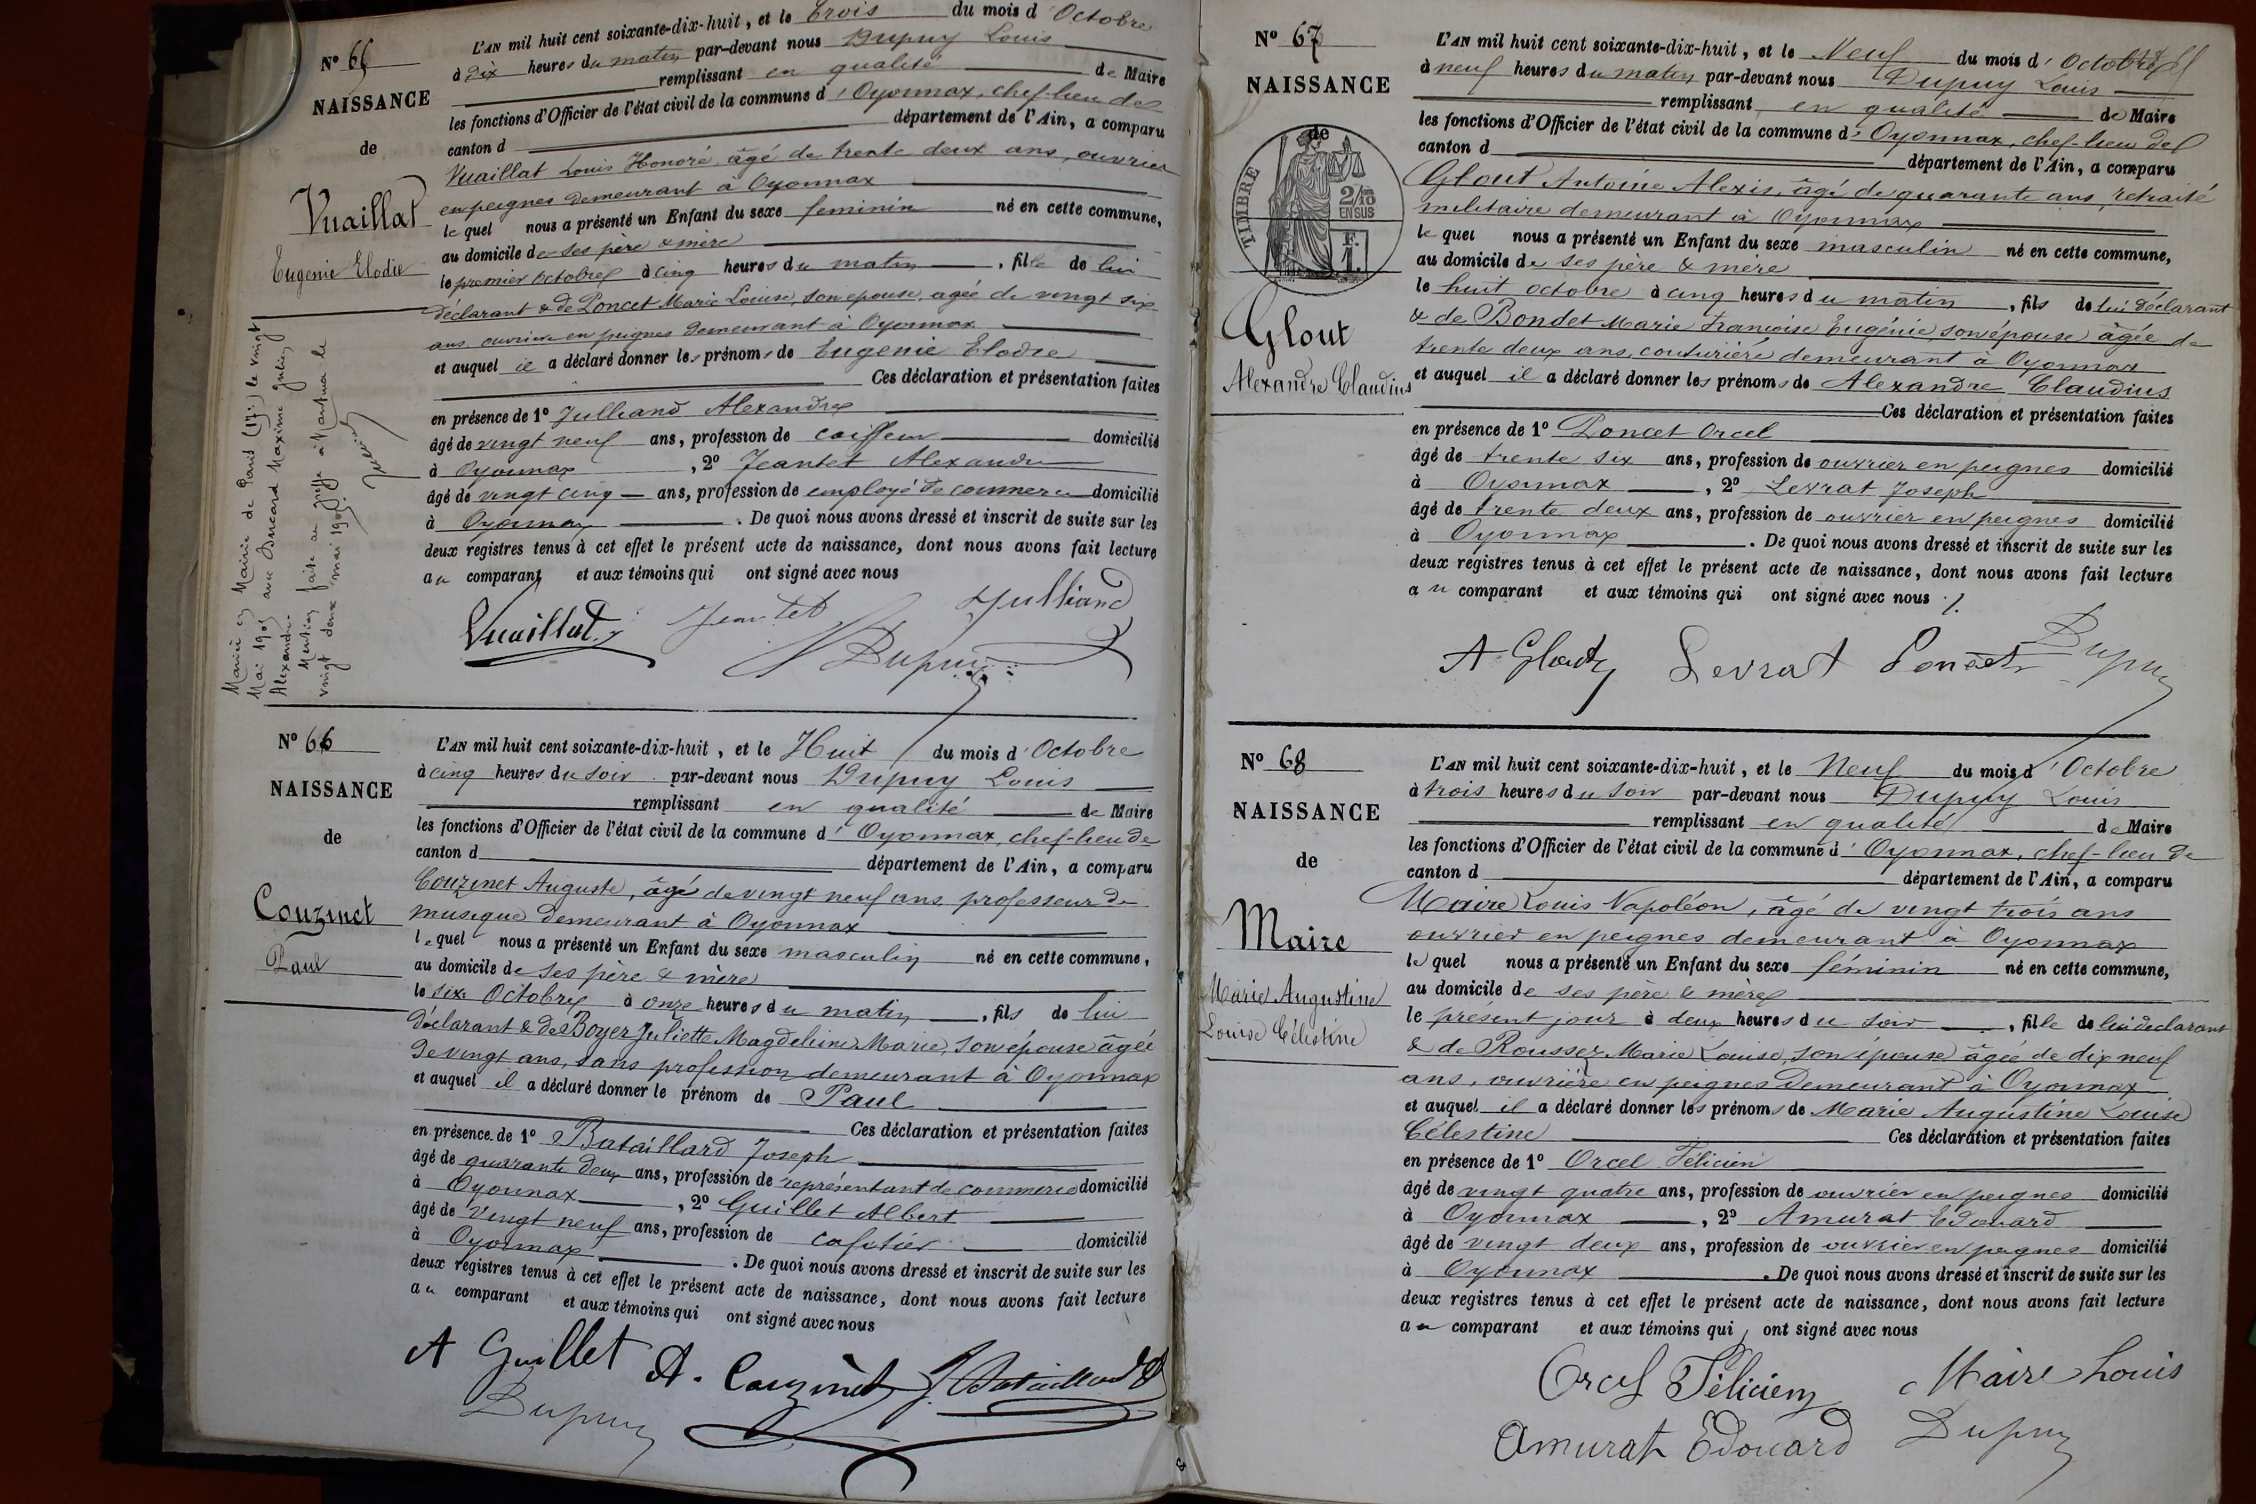 N° 65
NAISSANCE
de
Vuaillat
Eugenie Elodie
L'AN mil huit cent soixante-dix-huit, et le trois du mois d'Octobre
à dix heures du matin par-devant nous Dupuy Louis
remplissant en qualité de Maire
les fonctions d'Officier de l'état civil de la commune d'Oyonnax, chef-lieu de
canton d département de l'Ain, a comparu
Vuaillat Louis Honoré âgé de trente deux ans, ouvrier
en peignes demeurant à Oyonnax
lequel nous a présenté un Enfant du sexe feminin né en cette commune,
au domicile de ses père & mère
le premier Octobre à cinq heures du matin, fille de lui
déclarant & de Poncet Marie Louise, son épouse, agée de vingt six
ans ouvrière en peignes demeurant à Oyonnax
et auquel il a déclaré donner les prénoms de Eugenie Elodie
Ces déclaration et présentation faites
en présence de 1° Julliand Alexandre
âgé de vingt neuf ans, profession de coiffeur domicilié
à Oyonnax, 2° Jeantet Alexandre
âgé de vingt cinq ans, profession de employé de commerce domicilié
à Oyonnax. De quoi nous avons dressé et inscrit de suite sur les
deux registres tenus à cet effet le présent acte de naissance, dont nous avons fait lecture
au comparant et aux témoins qui ont signé avec nous
Vuaillat Jeantet Julliand
Dupuy
Mariée en Mairie de Paris le vingt
Mai avec Maxime Julien
Alexandre.
Mention faite au greffe à Nantua le
vingt deux mai
N° 66
NAISSANCE
de
Couzinet
Paul
L'AN mil huit cent soixante-dix-huit, et le Huit du mois d'Octobre
à cinq heures du soir par-devant nous Dupuy Louis
remplissant en qualité de Maire
les fonctions d'Officier de l'état civil de la commune d'Oyonnax, chef-lieu de
canton d département de l'Ain, a comparu
Couzinet Auguste, âgé de vingt neuf ans professeur de
musique demeurant à Oyonnax
lequel nous a présenté un Enfant du sexe masculin né en cette commune,
au domicile de ses père & mère
le six Octobre à onze heures du matin, fils de lui
déclarant & de Boyer Juliette Magdeleine Marie, son épouse âgée
de vingt ans, sans profession demeurant à Oyonnax
et auquel il a déclaré donner le prénom de Paul
Ces déclaration et présentation faites
en présence de 1° Bataillard Joseph
âgé de quarante deux ans, profession de représentant de commerce domicilié
à Oyonnax, 2° Guillet Albert
âgé de vingt neuf ans, profession de cafetier domicilié
à Oyonnax. De quoi nous avons dressé et inscrit de suite sur les
deux registres tenus à cet effet le présent acte de naissance, dont nous avons fait lecture
au comparant et aux témoins qui ont signé avec nous
A Guillet A. Couzinet J. Bataillard
Dupuy
N° 67
NAISSANCE
de
TIMBRE
2/10
EN SUS
F.
1.
Glout
Alexandre Claudius
L'AN mil huit cent soixante-dix-huit, et le Neuf du mois d'Octobre
à neuf heures du matin par-devant nous Dupuy Louis
remplissant en qualité de Maire
les fonctions d'Officier de l'état civil de la commune d'Oyonnax, chef-lieu de
canton d département de l'Ain, a comparu
Glout Antoine Alexis, âgé de quarante ans, retraité
militaire demeurant à Oyonnax
lequel nous a présenté un Enfant du sexe masculin né en cette commune,
au domicile de ses père & mère
le huit octobre à cinq heures du matin, fils de lui déclarant
& de Bondet Marie Françoise Eugénie, son épouse âgée de
trente deux ans, couturière demeurant à Oyonnax
et auquel il a déclaré donner les prénoms de Alexandre Claudius
Ces déclaration et présentation faites
en présence de 1° Poncet Orcel
âgé de trente six ans, profession de ouvrier en peignes domicilié
à Oyonnax, 2° Levrat Joseph
âgé de trente deux ans, profession de ouvrier en peignes domicilié
à Oyonnax. De quoi nous avons dressé et inscrit de suite sur les
deux registres tenus à cet effet le présent acte de naissance, dont nous avons fait lecture
au comparant et aux témoins qui ont signé avec nous
A Glout Levrat Poncet Dupuy
N° 68
NAISSANCE
de
Maire
Marie Augustine
Louise Célestine
L'AN mil huit cent soixante-dix-huit, et le Neuf du mois d'Octobre
à trois heures du soir par-devant nous Dupuy Louis
remplissant en qualité de Maire
les fonctions d'Officier de l'état civil de la commune d'Oyonnax, chef-lieu de
canton d département de l'Ain, a comparu
Maire Louis Napoléon, âgé de vingt trois ans
ouvrier en peignes demeurant à Oyonnax
lequel nous a présenté un Enfant du sexe féminin né en cette commune,
au domicile de ses père & mère
le présent jour à deux heures du soir, fille de lui declarant
& de Rousset Marie Louise, son épouse âgée de dix neuf
ans, ouvrière en peignes demeurant à Oyonnax
et auquel il a déclaré donner les prénoms de Marie Augustine Louise
Célestine Ces déclaration et présentation faites
en présence de 1° Orcel Félicien
âgé de vingt quatre ans, profession de ouvrier en peignes domicilié
à Oyonnax, 2° Amurat Edouard
âgé de vingt deux ans, profession de ouvrier en peignes domicilié
à Oyonnax. De quoi nous avons dressé et inscrit de suite sur les
deux registres tenus à cet effet le présent acte de naissance, dont nous avons fait lecture
au comparant et aux témoins qui ont signé avec nous
Orcel Félicien Maire Louis
Amurat Edouard Dupuy